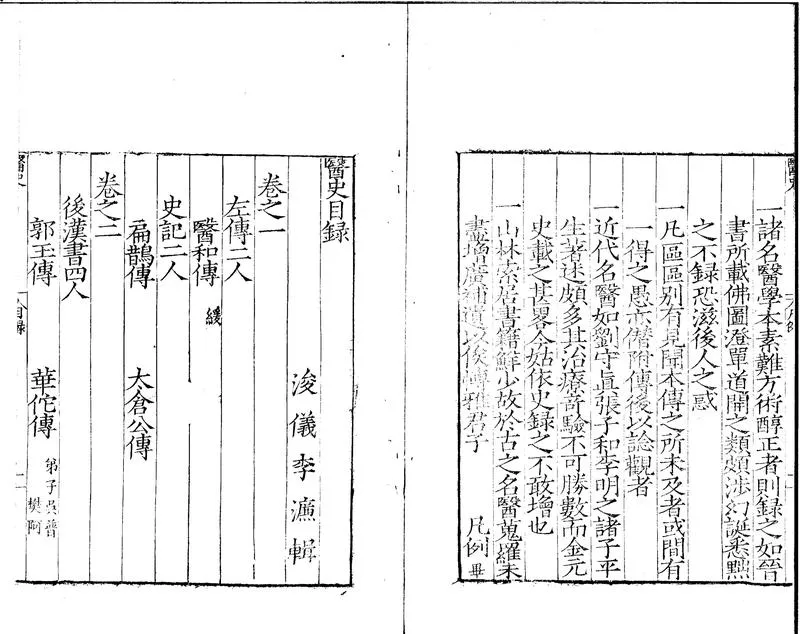 一諸名醫學本素難方術醇正者則録之如晉
書所載佛圖澄單道開之類頗涉幻誕悉黜
之不録恐滋後人之惑
一凡區區别有見聞本傳之所未及者或間有
一得之愚亦僭附傳後以諗觀者
一近代名醫如劉守眞張子和李明之諸子平
生著述頗多其治療竒驗不可勝數而金元
史載之甚畧今姑依史録之不敢增也
一山林索居書籍鮮少故於古之名醫蒐羅未
盡增廣補遺以俟博雅君子
凡例畢
醫史目録
浚儀李濂輯
卷之一
左傳二人
醫和傳 緩
史記二人
扁鵲傳 太倉公傳
卷之二
後漢書四人
郭玉傳 華佗傳 弟子吳普 樊阿
目録